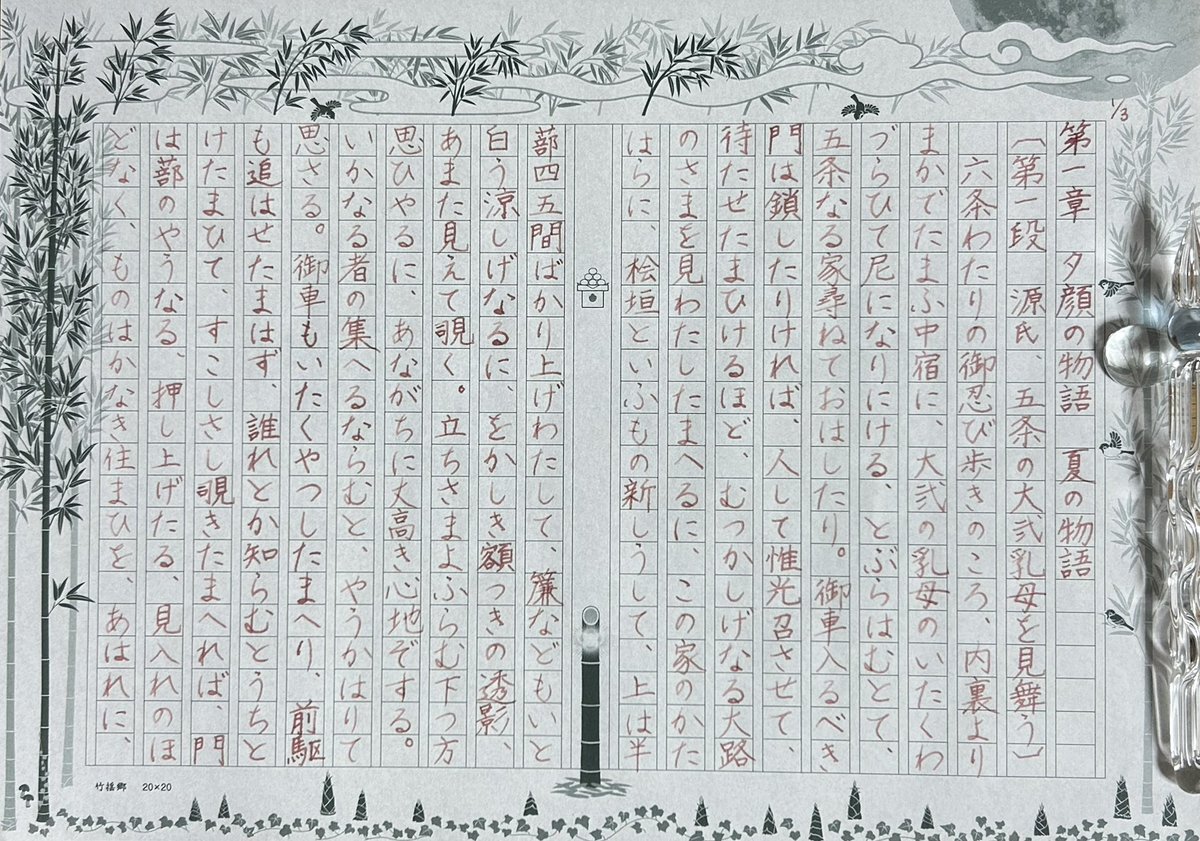 1/3
第一章　夕顔の物語　夏の物語
〔第一段　源氏、五条の大弐乳母を見舞う〕
六条わたりの御忍び歩きのころ、内裏より
まかでたまふ中宿に、大弐の乳母のいたくわ
づらひて尼になりにける、とぶらはむとて、
五条なる家尋ねておはしたり。御車入るべき
門は鎖したりければ、人して惟光召させて、
待たせたまひけるほど、むつかしげなる大路
のさまを見わたしたまへるに、この家のかた
はらに、桧垣といふもの新しうして、上は半
蔀四五間ばかり上げわたして、簾などもいと
白う涼しげなるに、をかしき額つきの透影、
あまた見えて覗く。立ちさまよふらむ下つ方
思ひやるに、あながちに丈高き心地ぞする。
いかなる者の集へるならむと、やうかはりて
思さる。御車もいたくやつしたまへり、前駆
も追はせたまはず、誰れとか知らむとうちと
けたまひて、すこしさし覗きたまへれば、門
は蔀のやうなる、押し上げたる、見入れのほ
どなく、ものはかなき住まひを、あはれに、
竹橋郷　20×20